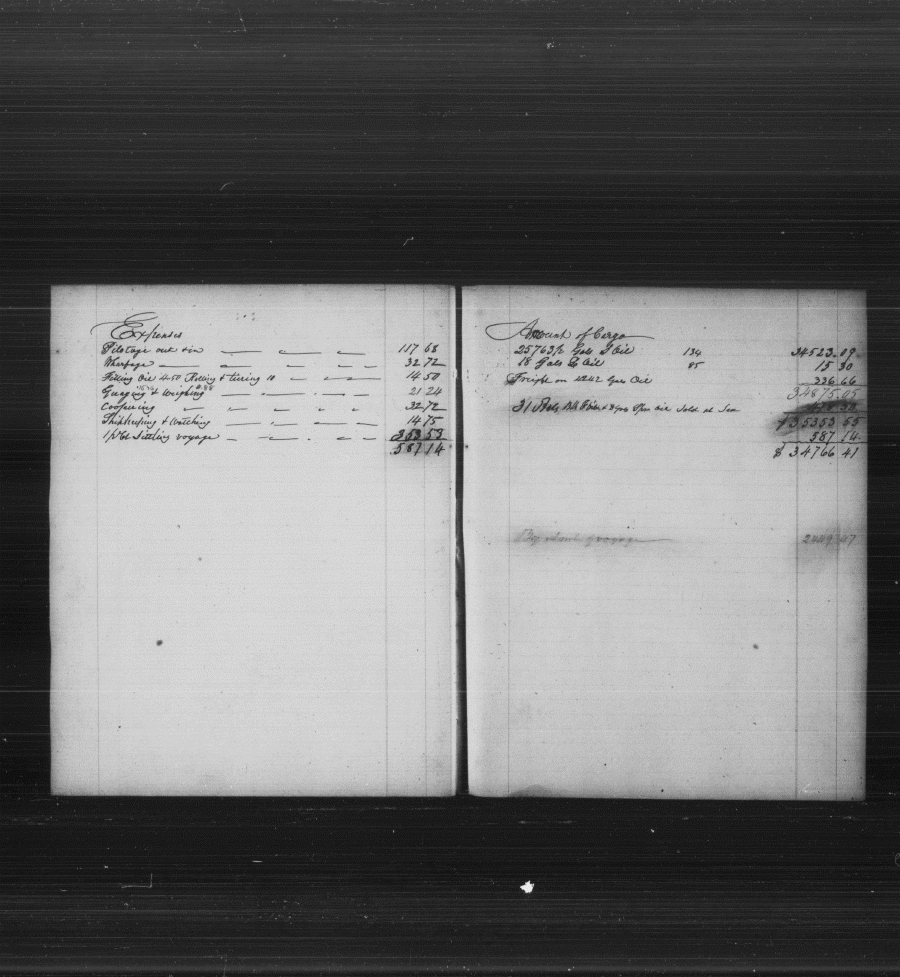 Expenses
Pilotage out & in 117 68
Wharfage 32 72
Filling Oil 4.50 Rolling & tiering 10 14 50
Gauging & Weighing 21 24
Coopering 32 72
Shipkeeping & Watching 14 75
Settling voyage 353 53
587 14
Amount of Cargo
25763½ Gals S Oil 134 34523.09
18 Gals B Oil 85 15 30
Freight on Gals Oil 336 66
34875.05
31 & Spm Oil Sold at Sea
$ 35353 55
587 14
$ 34766 41
voyage 47